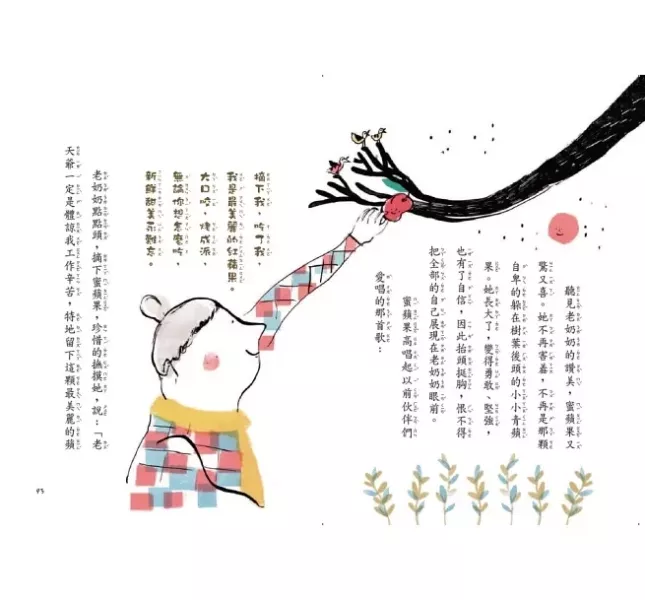 聽見老奶奶的讚美，蜜蘋果又
驚又喜。她不再害羞，不再是那顆
自卑的躲在樹葉後頭的小小青蘋
果。她長大了，變得勇敢、堅強，
也有了自信，因此抬頭挺胸，恨不得
把全部的自己展現在老奶奶眼前。
蜜蘋果高唱起以前伙伴們
愛唱的那首歌：
摘下我，吃了我，
我是最美麗的紅蘋果。
大口咬，烤成派，
無論你想怎麼吃，
新鮮甜美而難忘。
老奶奶點點頭，摘下蜜蘋果，珍惜的撫摸她，說：「老
天爺一定是體諒我工作辛苦，特地留下這顆最美麗的蘋